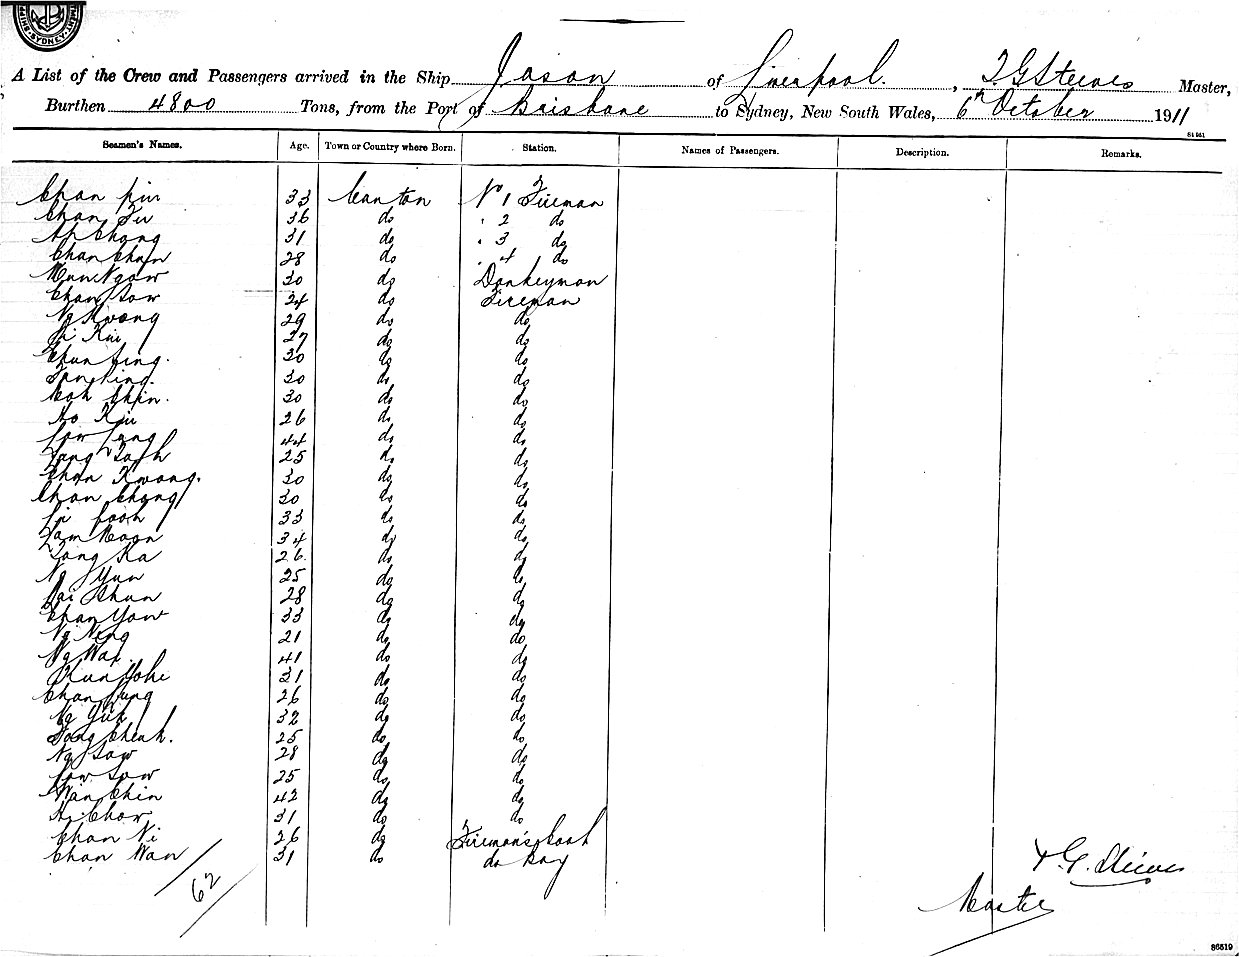 SYDNEY
A List of the Crew and Passengers arrived in the Ship Jason of Liverpool, T. G. Steeves Master,
Burthen 4800 Tons, from the Port of Brisbane to Sydney, New South Wales, 6th October 1911
Seamen's Names. Age. Town or Country where Born. Station. Names of Passengers. Description. Remarks.
Chan 33 Canton No 1 Fireman
Chan Fu 36 do " 2 do
Ah Chong 31 do " 3 do
Chan Chan 28 do " 4 do
30 do Donkeyman
Chan Sow 24 do Fireman
Ng Kwong 29 do do
Li Kui 27 do do
Chun 30 do do
30 do do
30 do do
Ho 26 do do
Low 44 do do
25 do do
Chan Kwong. 30 do do
Chan Chong 30 do do
33 do do
34 do do
Ka 26 do do
Ng Yun 25 do do
28 do do
Chan Yow 33 do do
Ng Ning 21 do do
Ng Wai 41 do do
31 do do
Chan 26 do do
Ng 32 do do
25 do do
Ng Sow 28 do do
Low Sow 25 do do
Wan Chin 42 do do
Chow 31 do do
Chan Ni 26 do Fireman's Cook
Chan Wan 31 do do Boy
62
T. G. Steeves
Master
86519